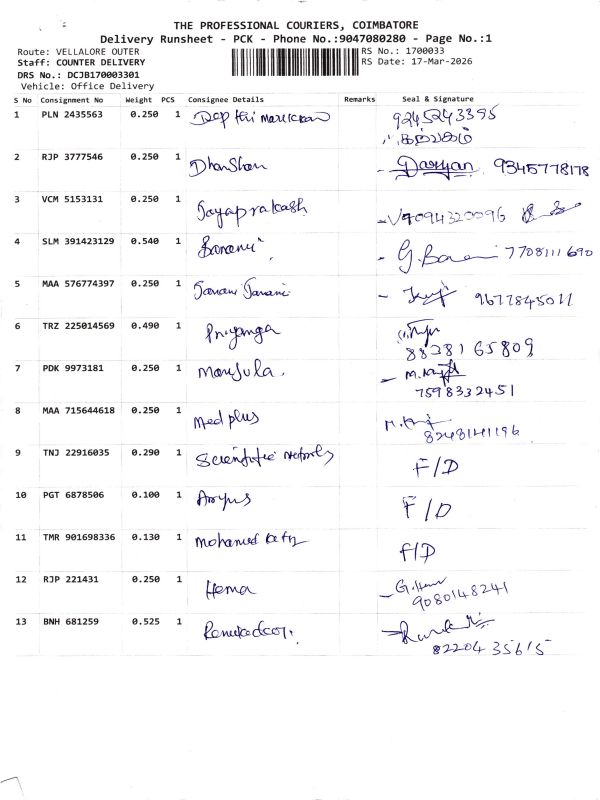 THE PROFESSIONAL COURIERS, COIMBATORE
Delivery Runsheet - PCK - Phone No.:9047080280 - Page No.:1
Route: VELLALORE OUTER RS No.: 1700033
Staff: COUNTER DELIVERY RS Date: 17-Mar-2026
DRS No.: DCJB170003301
Vehicle: Office Delivery
S No Consignment No Weight PCS Consignee Details Remarks Seal & Signature
1 PLN 2435563 0.250 1 9245243395
2 RJP 3777546 0.250 1 Dharshan 9345778178
3 VCM 5153131 0.250 1 Jayaprakash 9094320096
4 SLM 391423129 0.540 1 7708111690
5 MAA 576774397 0.250 1 9677845011
6 TRZ 225014569 0.490 1 Priyanga
8838165809
7 PDK 9973181 0.250 1 Manjula.
7598332451
8 MAA 715644618 0.250 1 Medplus
8248141196
9 TNJ 22916035 0.290 1 F/D
10 PGT 6878506 0.100 1 F/D
11 TMR 901698336 0.130 1 Mohamed F/D
12 RJP 221431 0.250 1 Hema
9080148241
13 BNH 681259 0.525 1
8220435615